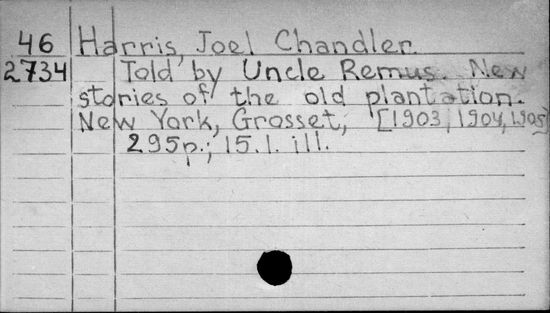 46 Harris, Joel Chandler.
2734 Told by Uncle Remus. New
stories of the old plantation.
New York, Grosset, [1903, 1904, 1905]
295p.; 15.l. ill.